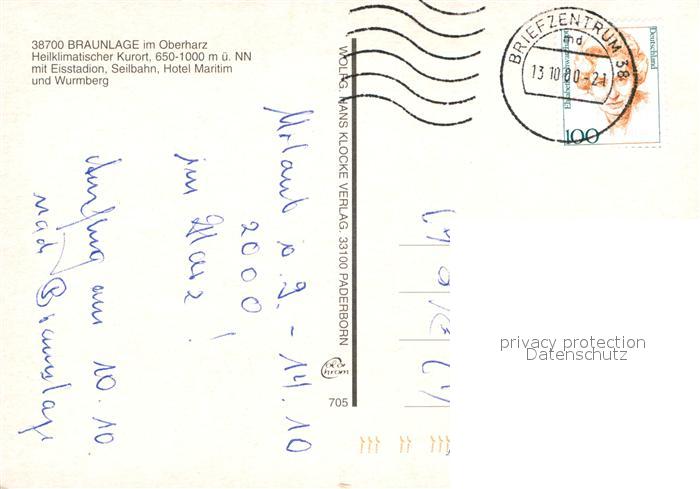 38700 BRAUNLAGE im Oberharz
Heilklimatischer Kurort, 650-1000 m ü. NN
mit Eisstadion, Seilbahn, Hotel Maritim
und Wurmberg
Urlaub v. 9. - 14.10
2000
im Harz!
Ausflug am 10.10
nach Braunlage
WOLFG. HANS KLOCKE VERLAG. 33100 PADERBORN
705
BRIEFZENTRUM 38
md
13.10.00-21
Deutschland
100
privacy protection
Datenschutz